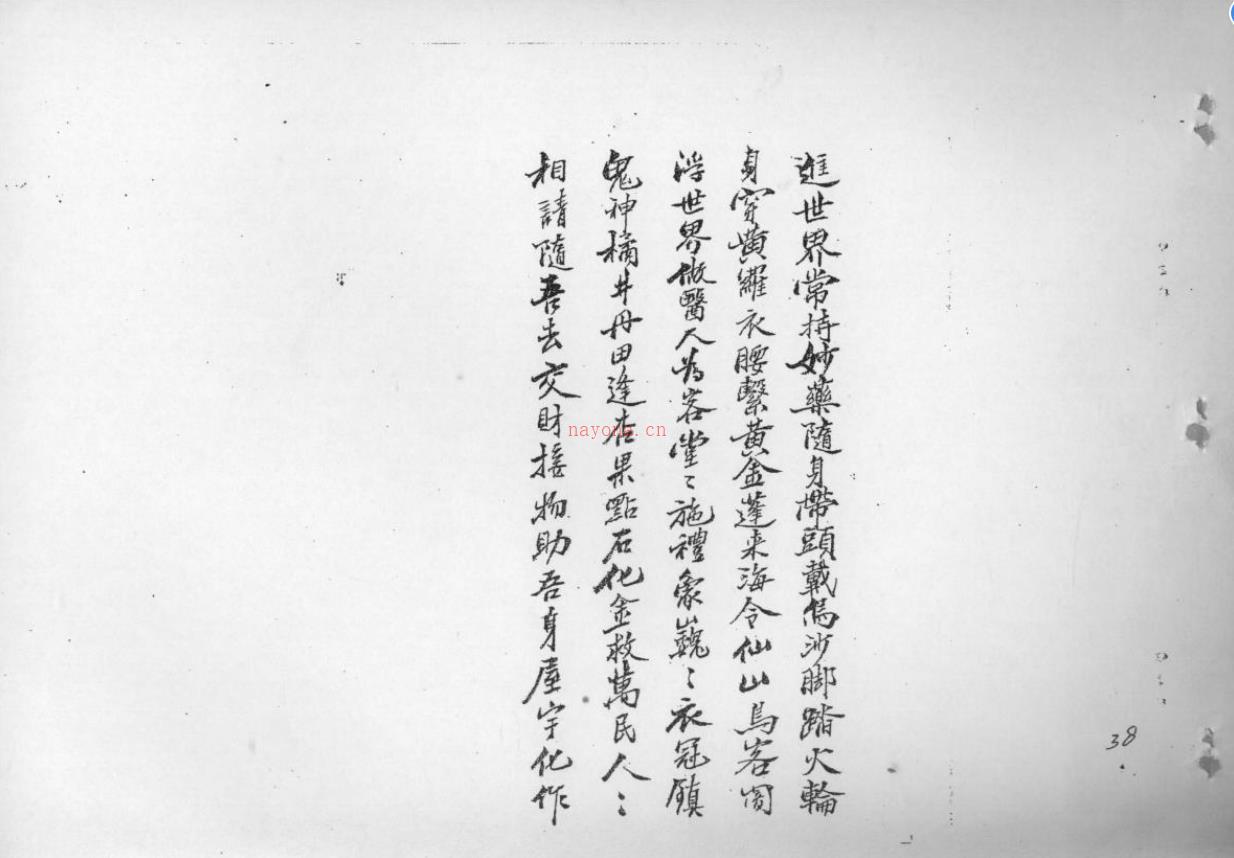 進世界常持妙藥隨身帶頭載烏沙脚踏火輪
身穿黃羅衣腰繫黃金蓬来海令仙山烏客闾
浮世界做醫人為客堂〻施禮象巍〻衣冠鎮
鬼神橘井丹田逢在果點石化金救萬民人〻
相請隨吾去交財接物助吾身屋宇化作
38
nayona.cn